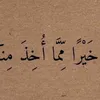 خَيْرًا مِّمَّا أُخِذَ